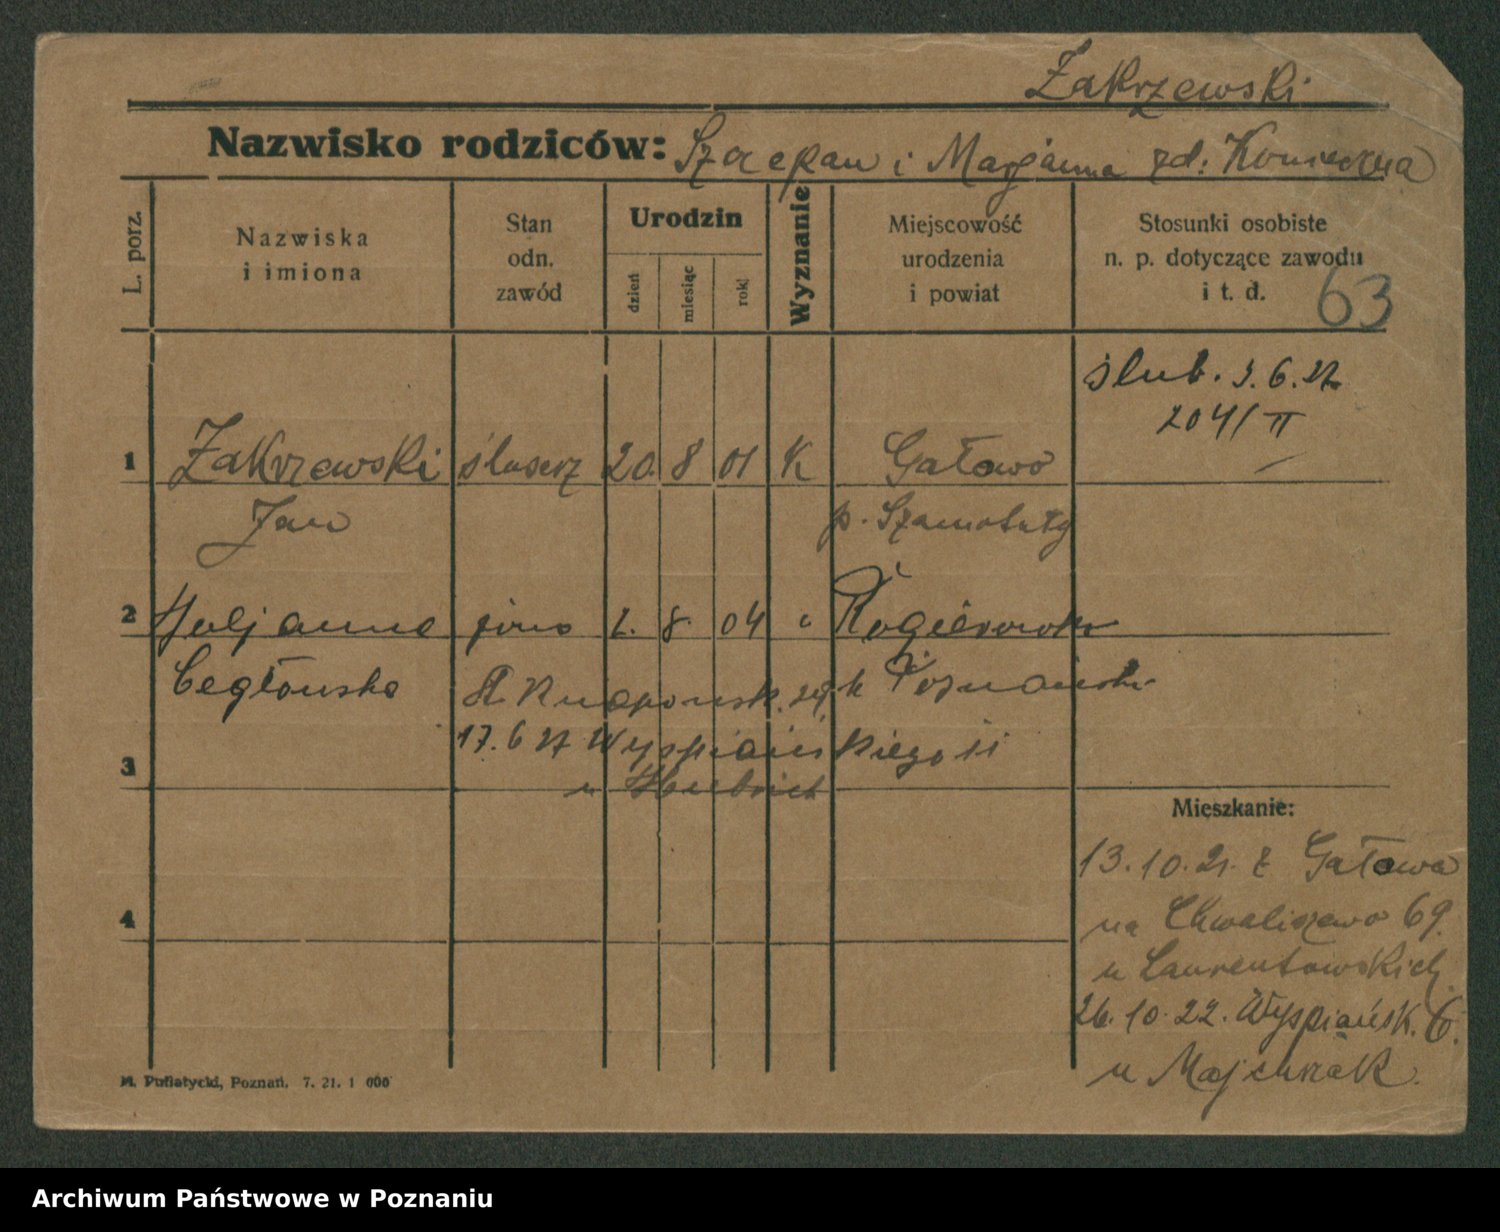 Zakrzewski
Nazwisko rodziców: Szczepan i Marjanna zd. Konieczna
L. porz.
Nazwiska
i imiona
Stan
odn.
zawód
Urodzin
dzień
miesiąc
rok
Wyznanie
Miejscowość
urodzenia
i powiat
Stosunki osobiste
n. p. dotyczące zawodu
i t. d.
63
ślub. 3.6.27
204/II
1 Zakrzewski ślusarz 20. 8 01 K Gałowo
Jan p. Szamotuły
2 Juljanna żona 2. 8. 04 " Rogierówko
Cegłowska
17.6 27 Wyspiańskiego 11
3
u
Mieszkanie:
13.10.21. z Gałowa
na Chwaliszewo 69.
u Laurentowskich
26.10.22. Wyspiańsk. 6.
u Majchrzak.
4
M. Putiatycki, Poznań. 7. 21. 1 000
Archiwum Państwowe w Poznaniu